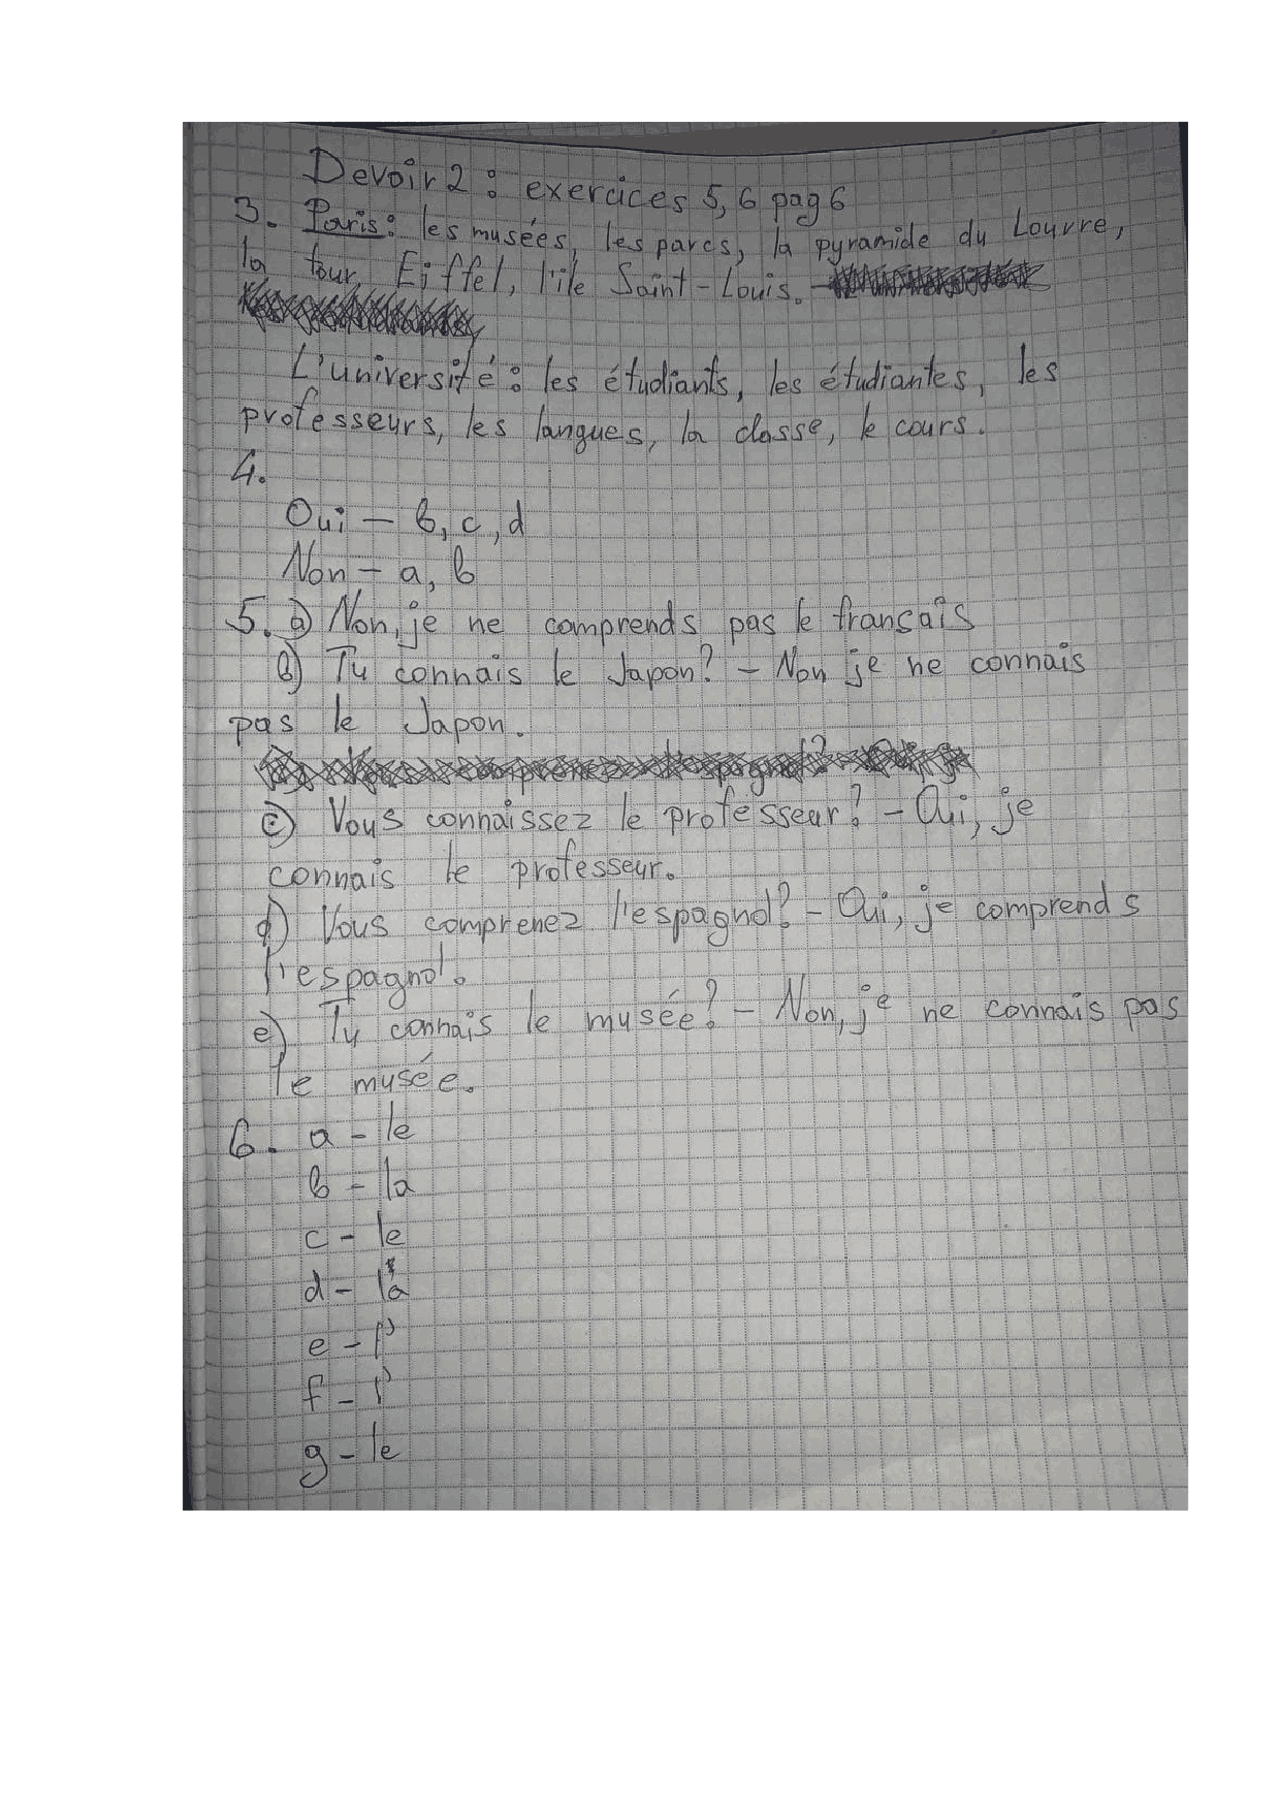 Devoir 2 : exercices 5, 6 pag 6
3. Paris: les musées, les parcs, la pyramide du Louvre,
la tour Eiffel, l'ile Saint-Louis.
L'université : les étudiants, les étudiantes, les
professeurs, les langues, la classe, le cours.
4.
Oui — b, c, d
Non — a, b
5. a) Non, je ne comprends pas le francais
b) Tu connais le Japon? — Non je ne connais
pas le Japon.
c) Vous connaissez le professeur? — Oui, je
connais le professeur.
d) Vous comprenez l'espagnol? — Oui, je comprends
l'espagnol.
e) Tu connais le musée? — Non, je ne connais pas
le musée.
6. a — le
b — la
c — le
d — la
e — l'
f — l'
g — le